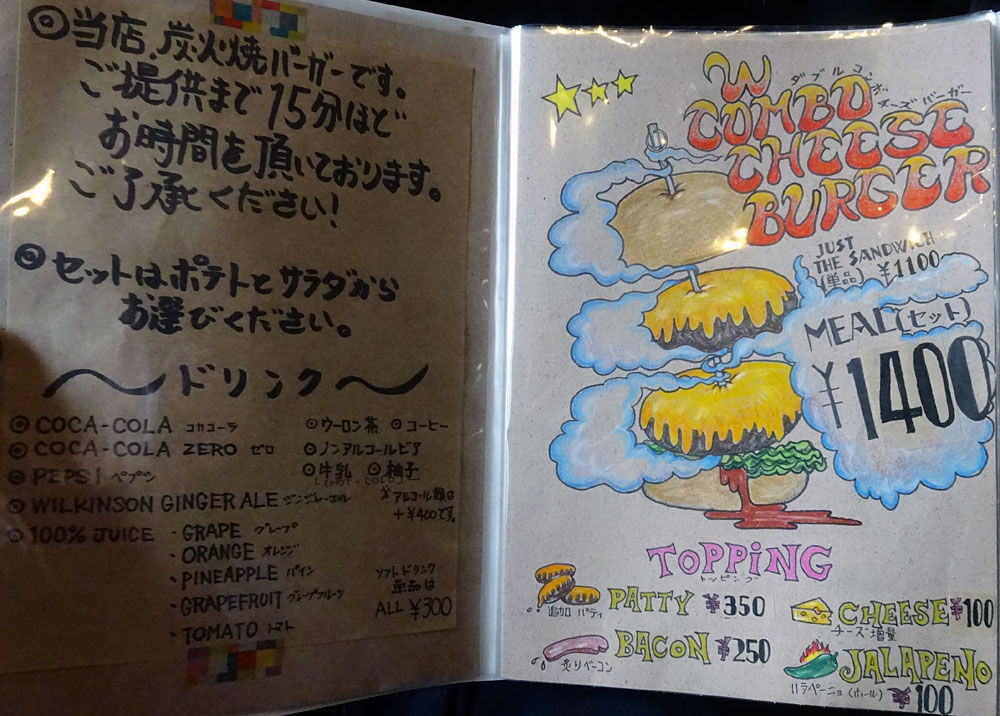 ◎当店、炭火焼バーガーです。
ご提供まで15分ほど
お時間を頂いております。
ご了承ください!
◎セットはポテトとサラダから
お選びください。
〜ドリンク〜
◎COCA-COLA コカコーラ
◎COCA-COLA ZERO ゼロ
◎PEPSI ペプシ
◎WILKINSON GINGER ALE ジンジャーエール
◎100% JUICE ・GRAPE グレープ
・ORANGE オレンジ
・PINEAPPLE パイン
・GRAPEFRUIT グレープフルーツ
・TOMATO トマト
◎ウーロン茶 ◎コーヒー
◎ノンアルコールビア
◎牛乳 ◎柚子
(HOT・COLD)
※アルコール類は
+¥400です。
ソフトドリンク
単品は
ALL ¥300
W
ダブルコンボ
COMBO
チーズバーガー
CHEESE
BURGER
JUST
THE SANDWICH
(単品) ¥1100
MEAL(セット)
¥1400
TOPPING
トッピング
PATTY ¥350
追加 パティ
CHEESE ¥100
チーズ増量
BACON ¥250
炙りベーコン
JALAPENO
ハラペーニョ(ホール) ¥100